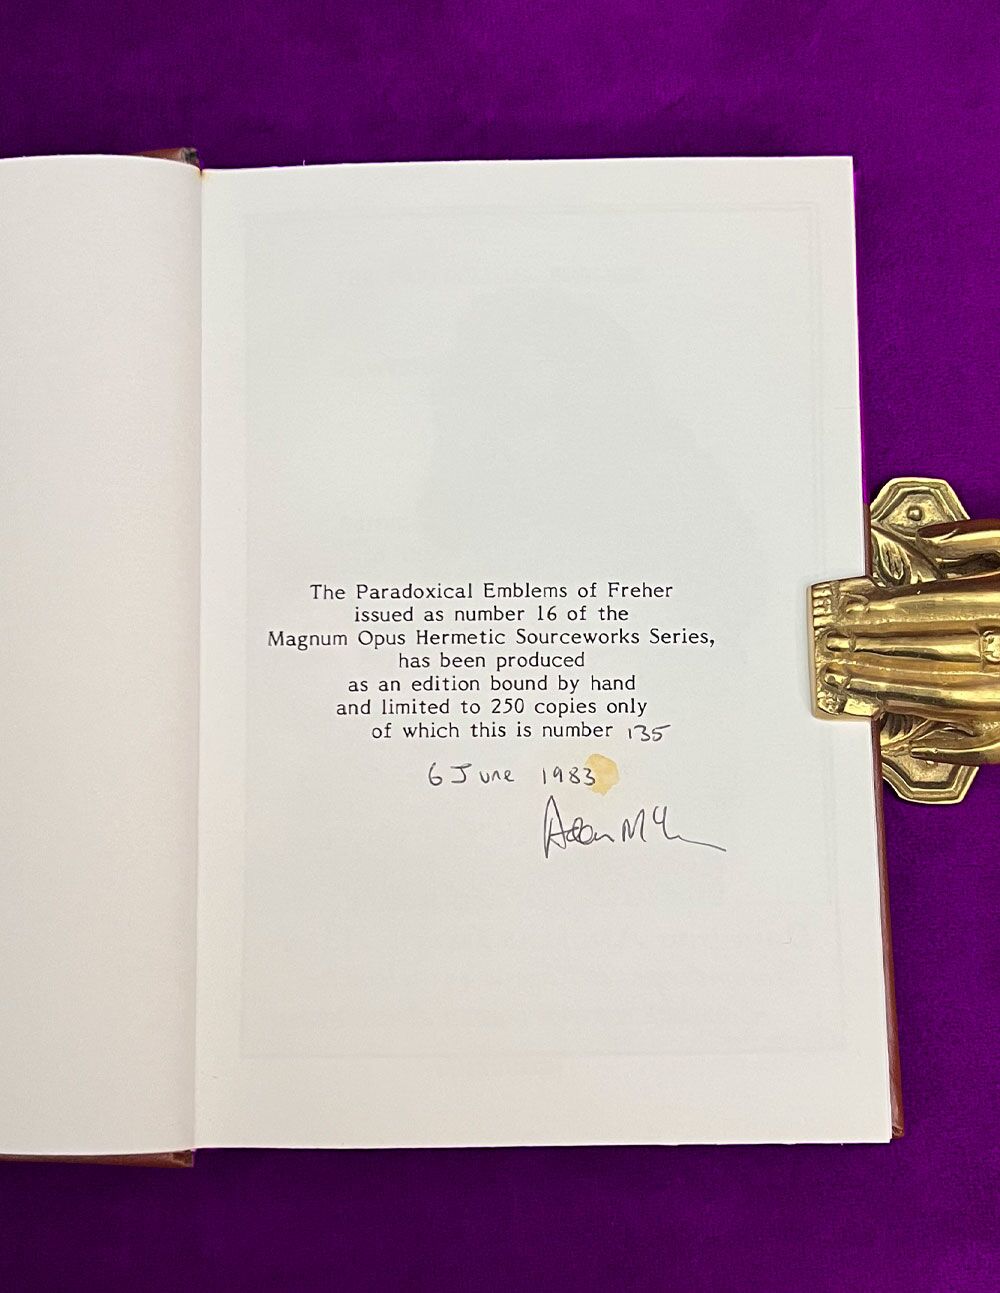 The Paradoxical Emblems of Freher
issued as number 16 of the
Magnum Opus Hermetic Sourceworks Series,
has been produced
as an edition bound by hand
and limited to 250 copies only
of which this is number 135
6 June 1983
Adam McL